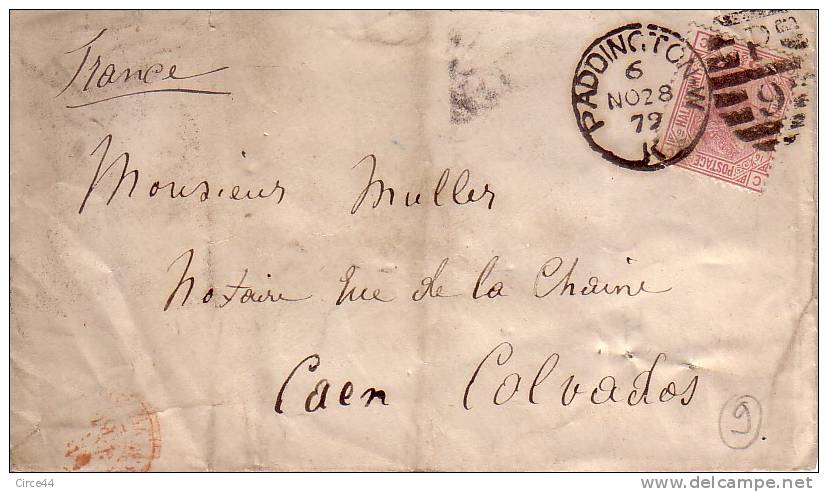 France
PADDINGTON W
6
NO 28
79
K
P
9
HALF
POSTAGE
C
Monsieur Muller
Notaire rue de la Chaine
Caen Calvados
9
Circe44
delcampe.net